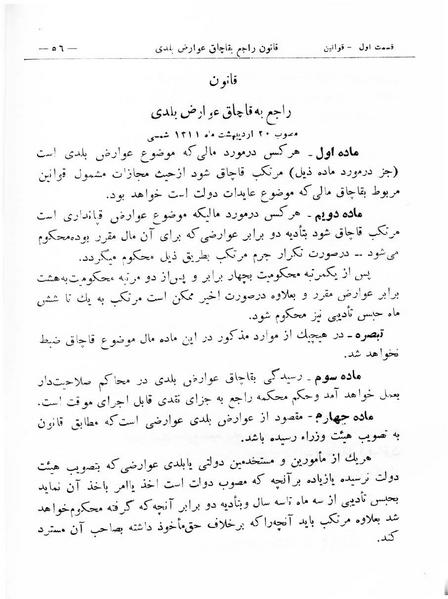 قسمت اول - قوانین
قانون راجع بقاچاق عوارض بلدی
— ۵۶ —
قانون
راجع به قاچاق عوارض بلدی
مصوب ۲۰ اردیبهشت ماه ۱۳۱۱ شمسی
ماده اول - هر کس در مورد مالی که موضوع عوارض بلدی است
(جز در مورد ماده ذیل) مرتکب قاچاق شود از حیث مجازات مشمول قوانین
مربوط بقاچاق مالی که موضوع عایدات دولت است خواهد بود.
ماده دویم - هر کس در مورد مالیکه موضوع عوارض قپانداری است
مرتکب قاچاق شود بتأدیه دو برابر عوارضی که برای آن مال مقرر بوده محکوم
می‌شود – در صورت تکرار جرم مرتکب بطریق ذیل محکوم میگردد.
پس از یکمرتبه محکومیت بچهار برابر و پس از دو مرتبه محکومیت به هشت
برابر عوارض مقرر و بعلاوه در صورت اخیر ممکن است مرتکب به یك تا شش
ماه حبس تأدیبی نیز محکوم شود.
تبصره - در هیچیك از موارد مذکور در این ماده مال موضوع قاچاق ضبط
نخواهد شد.
ماده سوم - رسیدگی بقاچاق عوارض بلدی در محاکم صلاحیت‌دار
بعمل خواهد آمد و حکم محکمه راجع به جزای نقدی قابل اجرای موقت است.
ماده چهارم - مقصود از عوارض بلدی عوارضی است که مطابق قانون
به تصویب هیئت وزراء رسیده باشد.
هر یك از مأمورین و مستخدمین دولتی یا بلدی عوارضی که بتصویب هیئت
دولت نرسیده یا زیاده بر آنچه که مصوب دولت است اخذ یا امر باخذ آن نماید
بحبس تأدیبی از سه ماه تا سه سال و بتأدیه دو برابر آنچه که گرفته محکوم خواهد
شد بعلاوه مرتکب باید آنچه را که برخلاف حق مأخوذ داشته بصاحب آن مسترد
کند.